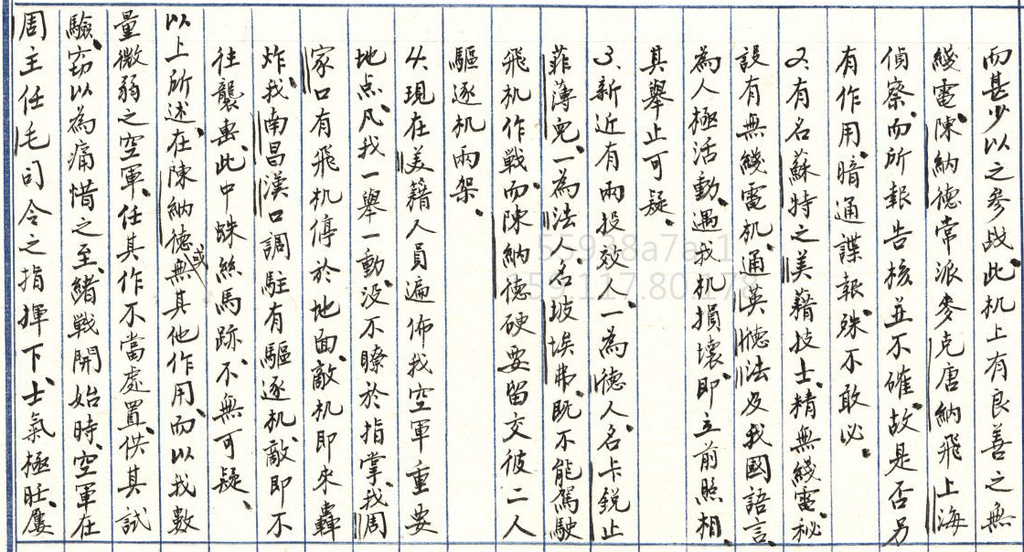 而甚少以之參战、此机上有良善之無
綫電、陳納德常派麥克唐納飛上海
偵察、而所報告核並不確、故是否另
有作用、暗通諜報、殊不敢必。
2、有名蘇特之美藉技士、精無綫電、秘
設有無綫電机、通英德法及我國語言、
為人極活動、遇我机損壞、即立前照相、
其舉止可疑、
3、新近有兩投效人、一為德人、名卡銳止
菲薄鬼、一為法人名坡埃弗、既不能駕駛
飛机作戰、而陳納德硬要留交彼二人
驅逐机兩架、
4、現在美籍人員遍佈我空軍重要
地点、凡我一舉一動、没不瞭於指掌、我周
家口有飛机停於地面、敵机即來轟
炸、我南昌漢口調駐有驅逐机、敵即不
往襲擊、此中蛛絲馬跡、不無可疑、
以上所述、在陳納德或無其他作用、而以我數
量微弱之空軍、任其作不當處置、供其試
驗、窃以為痛惜之至、緒戰開始時、空軍在
周主任毛司令之指揮下、士氣極旺、屢
55928a7a-1
159.117.80.178